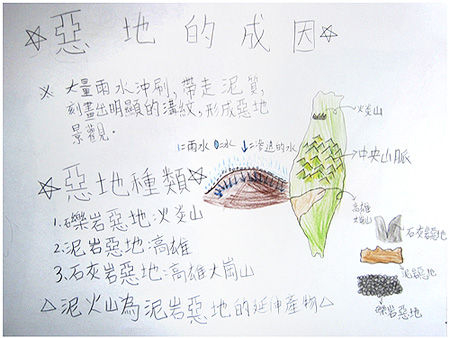 ☆惡地的成因☆
※ 大量雨水沖刷,帶走泥質,
刻畫出明顯的溝紋,形成惡地
景觀.
☆惡地種類☆
1.礫岩惡地:火炎山
2.泥岩惡地:高雄
3.石灰岩惡地:高雄大崗山
△泥火山為泥岩惡地的延伸產物△
=雨水 =水 ↓=滲透的水
火炎山
中央山脈
高雄
大崗山
石灰岩惡地
泥岩惡地
礫岩惡地